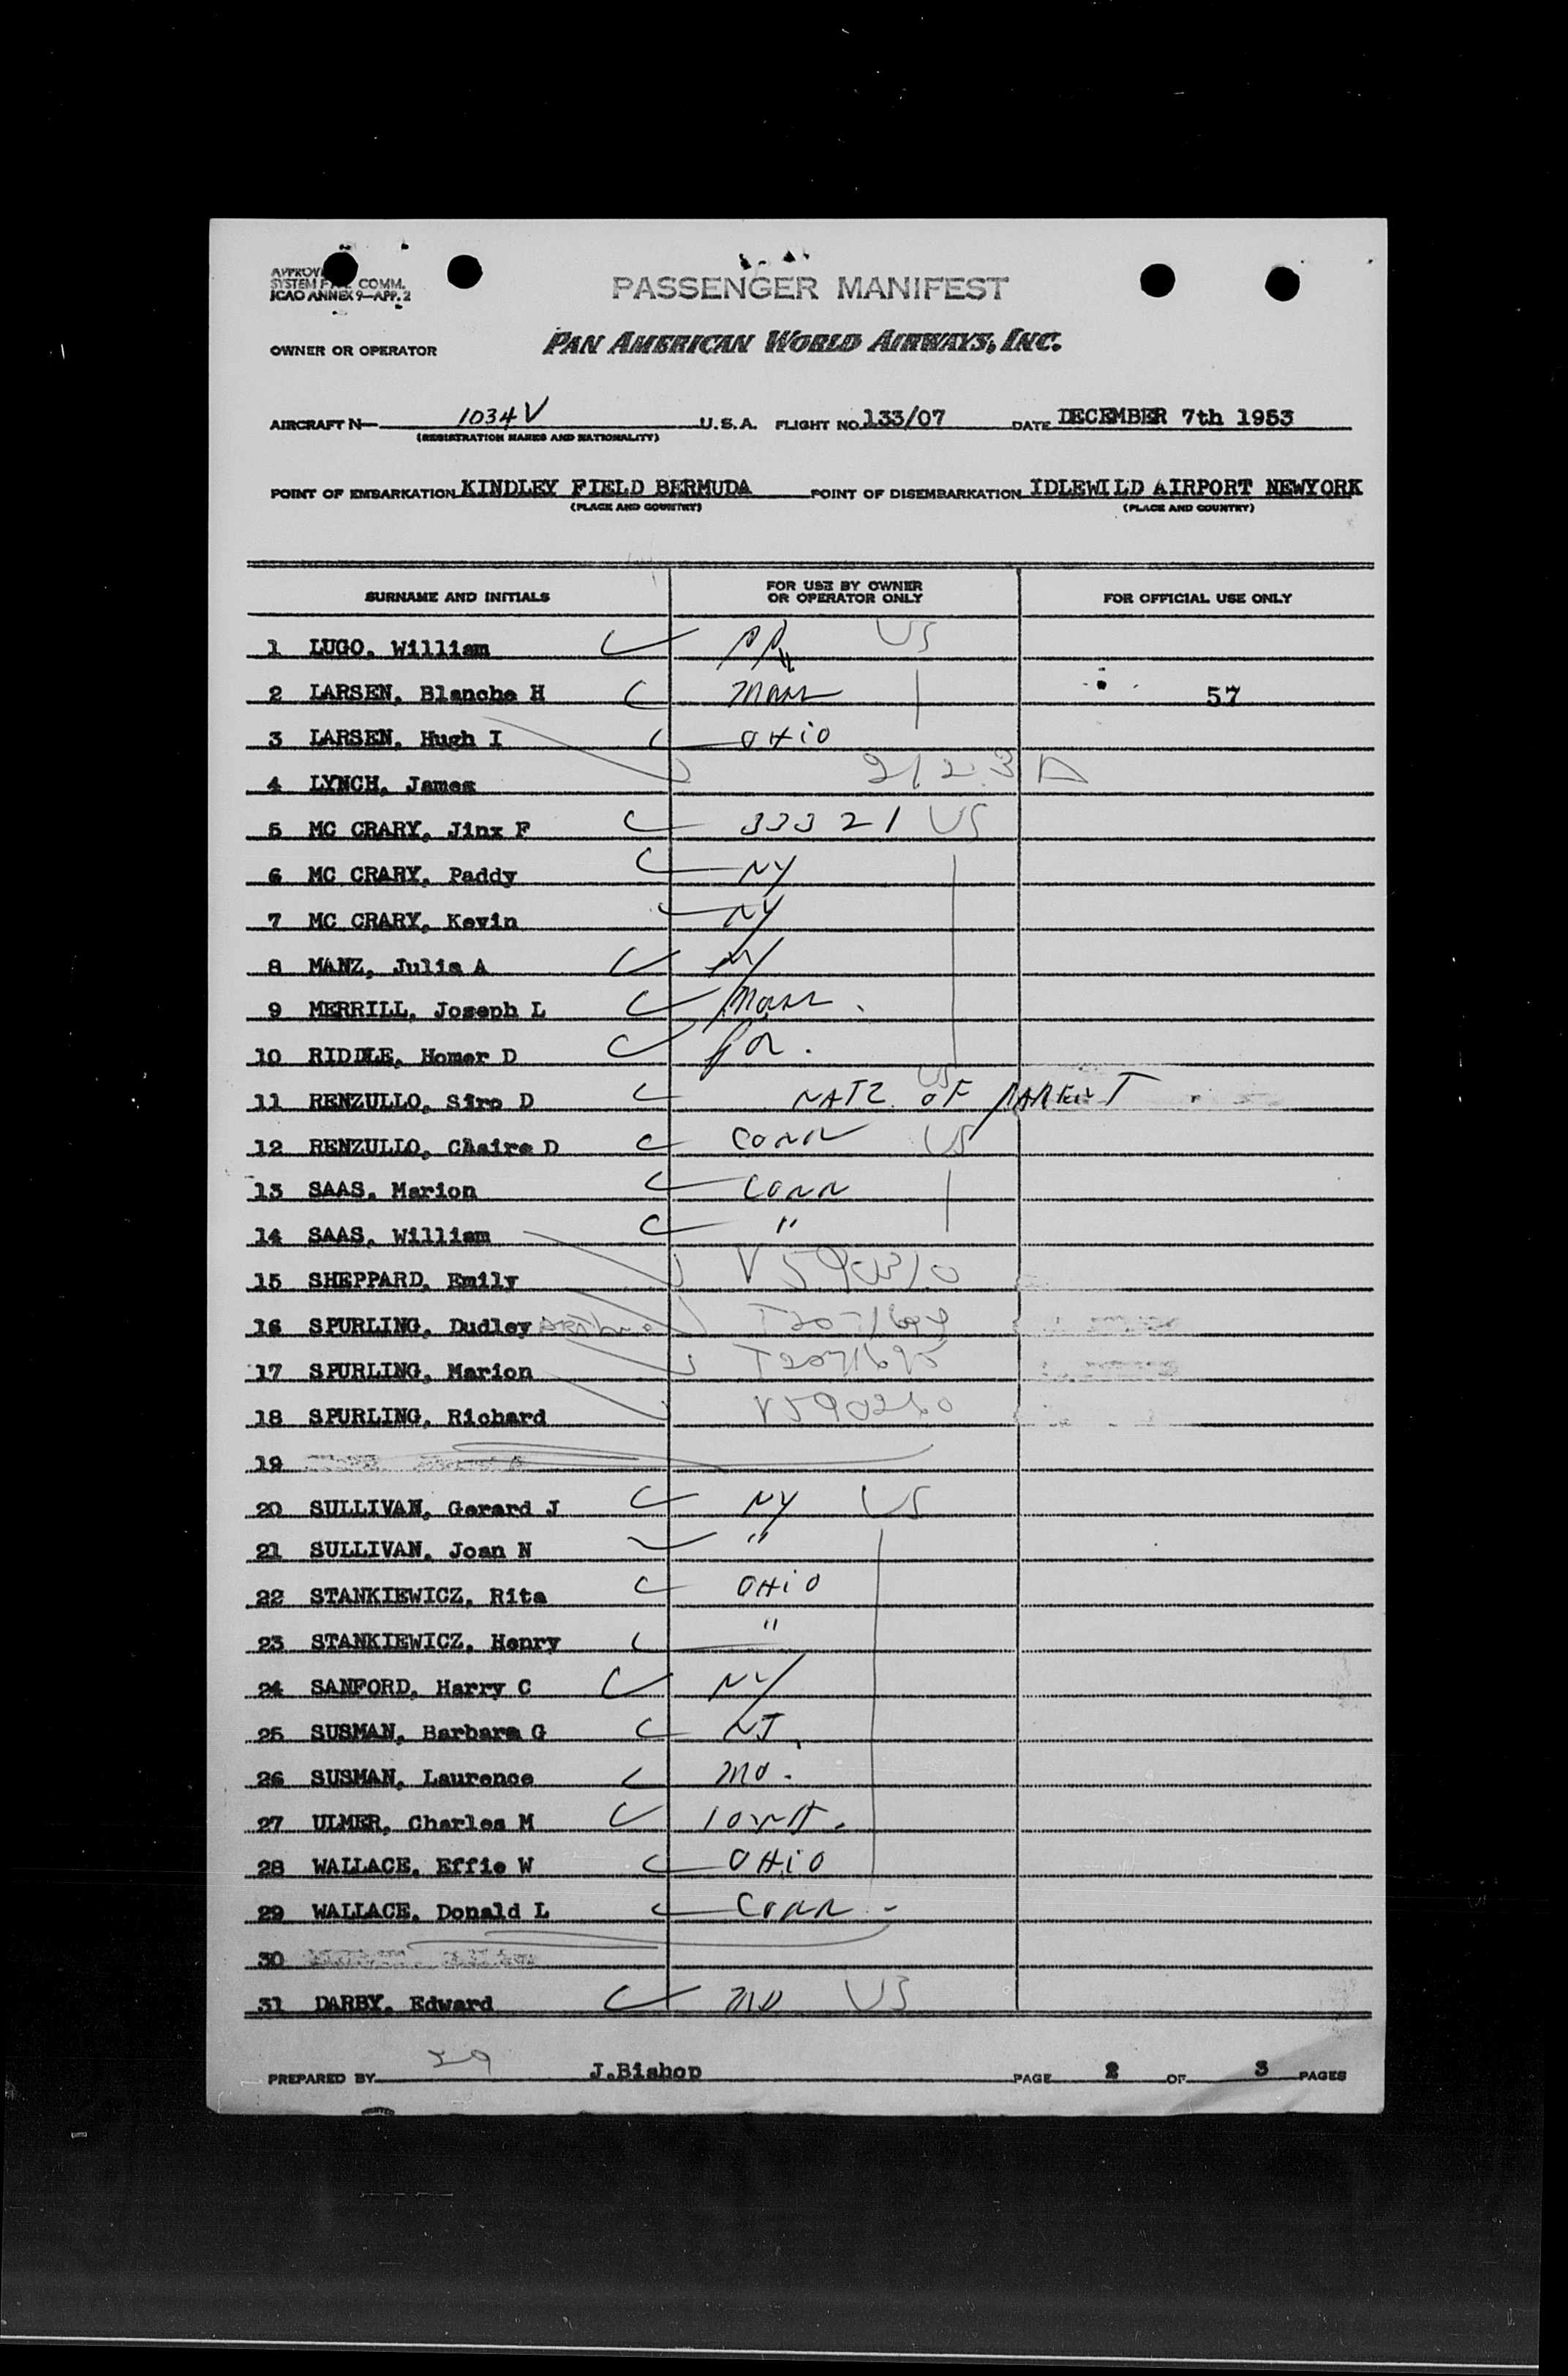 SYSTEM COMM.
ICAO ANNEX 9—APP. 2
PASSENGER MANIFEST
OWNER OR OPERATOR PAN AMERICAN WORLD AIRWAYS, INC.
AIRCRAFT N— 1034V U.S.A. FLIGHT NO. 133/07 DATE DECEMBER 7th 1953
(REGISTRATION MARKS AND NATIONALITY)
POINT OF EMBARKATION KINDLEY FIELD BERMUDA POINT OF DISEMBARKATION IDLEWILD AIRPORT NEWYORK
(PLACE AND COUNTRY) (PLACE AND COUNTRY)
SURNAME AND INITIALS FOR USE BY OWNER OR OPERATOR ONLY FOR OFFICIAL USE ONLY
1 LUGO, William US
2 LARSEN, Blanche H Mass 57
3 LARSEN, Hugh I OHIO
4 LYNCH, James
5 MC CRARY, Jinx F 33321 US
6 MC CRARY, Paddy NY
7 MC CRARY, Kevin NY
8 MANZ, Julia A NY
9 MERRILL, Joseph L Mass
10 RIDDLE, Homer D
11 RENZULLO, Siro D NATZ OF PARENT US
12 RENZULLO, Chaire D CONN US
13 SAAS, Marion CONN
14 SAAS, William "
15 SHEPPARD, Emily V590310
16 SPURLING, Dudley
17 SPURLING, Marion T2071695
18 SPURLING, Richard
19
20 SULLIVAN, Gerard J NY US
21 SULLIVAN, Joan N "
22 STANKIEWICZ, Rita OHIO
23 STANKIEWICZ, Henry "
24 SANFORD, Harry C NY
25 SUSMAN, Barbara G NJ
26 SUSMAN, Laurence Mo.
27 ULMER, Charles M IOWA.
28 WALLACE, Effie W OHIO
29 WALLACE, Donald L CONN
30
31 DARBY, Edward MD US
PREPARED BY 29 J.Bishop PAGE 2 OF 3 PAGES